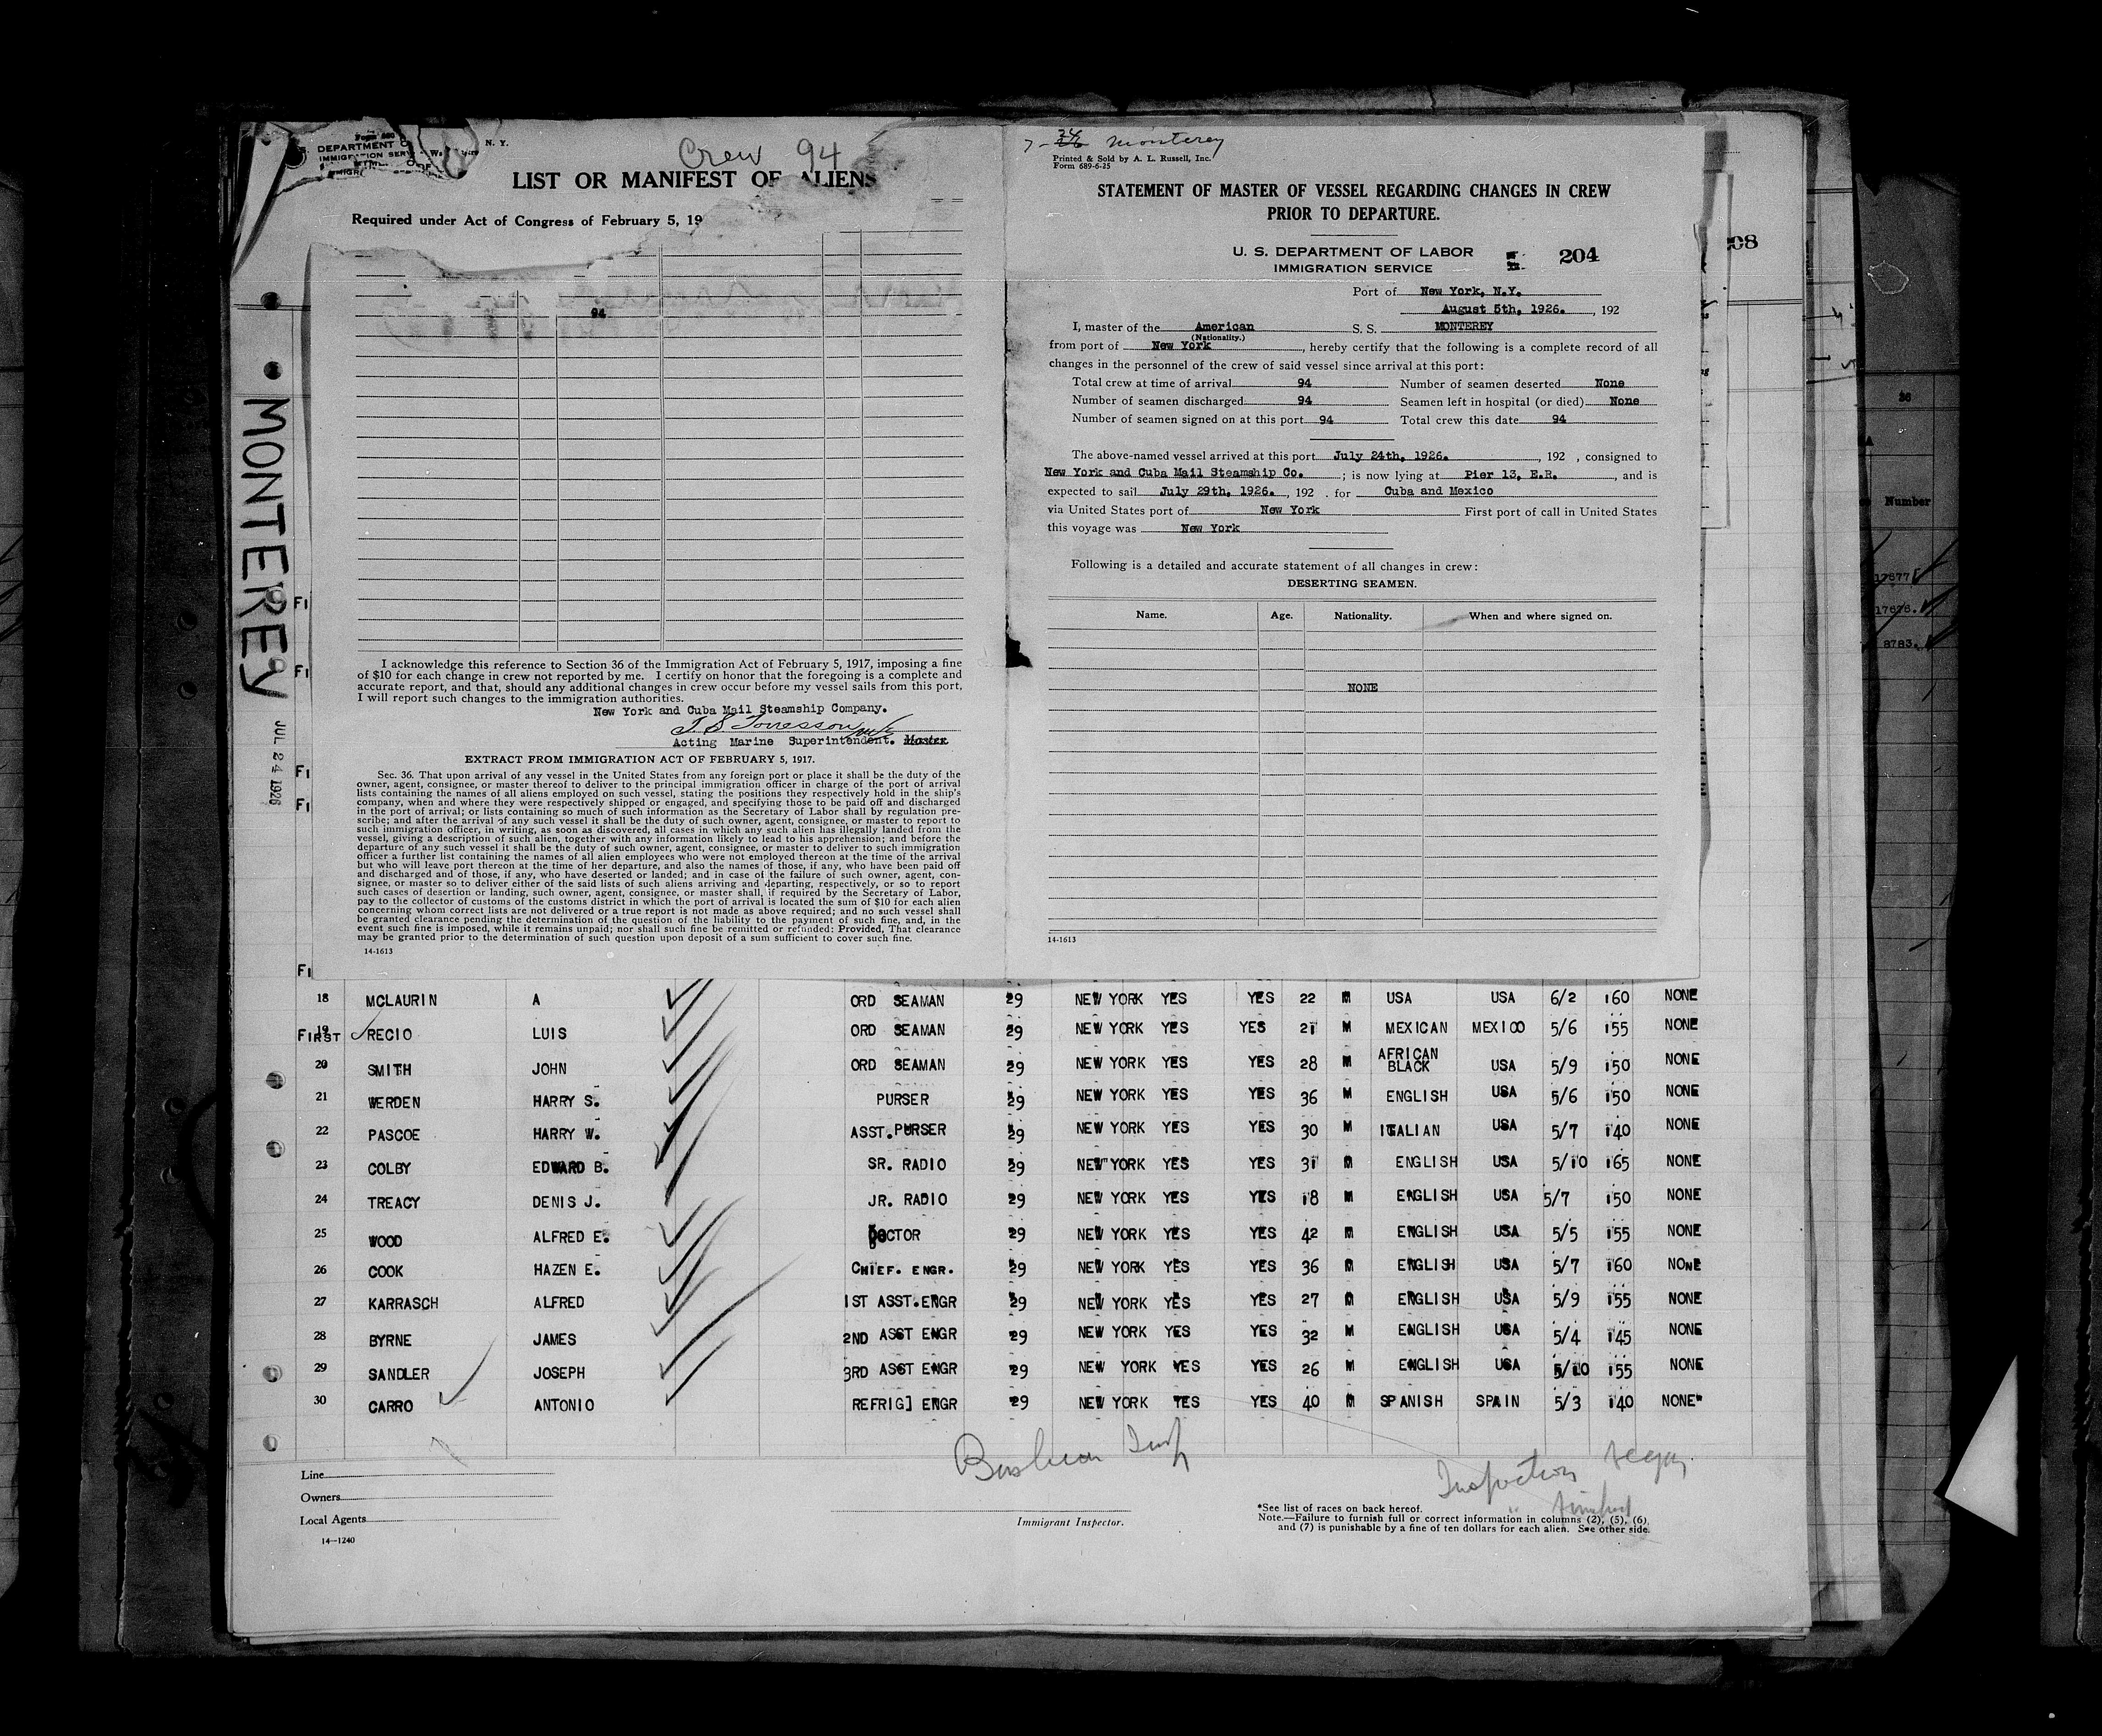 DEPARTMENT O
IMMIGRATION SERV
N. Y.
Crew 94
LIST OR MANIFEST OF ALIENS
Required under Act of Congress of February 5, 19
94
I acknowledge this reference to Section 36 of the Immigration Act of February 5, 1917, imposing a fine
of $10 for each change in crew not reported by me. I certify on honor that the foregoing is a complete and
accurate report, and that, should any additional changes in crew occur before my vessel sails from this port,
I will report such changes to the immigration authorities.
New York and Cuba Mail Steamship Company.
Acting Marine Superintendent. Master
EXTRACT FROM IMMIGRATION ACT OF FEBRUARY 5, 1917.
Sec. 36. That upon arrival of any vessel in the United States from any foreign port or place it shall be the duty of the
owner, agent, consignee, or master thereof to deliver to the principal immigration officer in charge of the port of arrival
lists containing the names of all aliens employed on such vessel, stating the positions they respectively hold in the ship's
company, when and where they were respectively shipped or engaged, and specifying those to be paid off and discharged
in the port of arrival; or lists containing so much of such information as the Secretary of Labor shall by regulation pre-
scribe; and after the arrival of any such vessel it shall be the duty of such owner, agent, consignee, or master to report to
such immigration officer, in writing, as soon as discovered, all cases in which any such alien has illegally landed from the
vessel, giving a description of such alien, together with any information likely to lead to his apprehension; and before the
departure of any such vessel it shall be the duty of such owner, agent, consignee, or master to deliver to such immigration
officer a further list containing the names of all alien employees who were not employed thereon at the time of the arrival
but who will leave port thereon at the time of her departure, and also the names of those, if any, who have been paid off
and discharged and of those, if any, who have deserted or landed; and in case of the failure of such owner, agent, con-
signee, or master so to deliver either of the said lists of such aliens arriving and departing, respectively, or so to report
such cases of desertion or landing, such owner, agent, consignee, or master shall, if required by the Secretary of Labor,
pay to the collector of customs of the customs district in which the port of arrival is located the sum of $10 for each alien
concerning whom correct lists are not delivered or a true report is not made as above required; and no such vessel shall
be granted clearance pending the determination of the question of the liability to the payment of such fine, and, in the
event such fine is imposed, while it remains unpaid; nor shall such fine be remitted or refunded: Provided, That clearance
may be granted prior to the determination of such question upon deposit of a sum sufficient to cover such fine.
14-1613
Monterey
Printed & Sold by A. L. Russell, Inc.
Form 689-6-25
STATEMENT OF MASTER OF VESSEL REGARDING CHANGES IN CREW
PRIOR TO DEPARTURE.
U. S. DEPARTMENT OF LABOR
IMMIGRATION SERVICE
204
Port of New York, N.Y.
August 5th, 1926. , 192
I, master of the American S. S. MONTEREY
(Nationality.)
from port of New York , hereby certify that the following is a complete record of all
changes in the personnel of the crew of said vessel since arrival at this port:
Total crew at time of arrival 94 Number of seamen deserted None
Number of seamen discharged 94 Seamen left in hospital (or died) None
Number of seamen signed on at this port 94 Total crew this date 94
The above-named vessel arrived at this port July 24th, 1926. , 192 , consigned to
New York and Cuba Mail Steamship Co. ; is now lying at Pier 13, E.R. , and is
expected to sail July 29th, 1926. , 192 . for Cuba and Mexico
via United States port of New York First port of call in United States
this voyage was New York
Following is a detailed and accurate statement of all changes in crew:
DESERTING SEAMEN.
Name. Age. Nationality. When and where signed on.
NONE
14-1613
208
36
Number
17677
17678.
8783.
MONTEREY
JUL 24 1926
FI
FI
FI
FI
FI
18 MCLAURIN A ORD SEAMAN 29 NEW YORK YES YES 22 M USA USA 6/2 160 NONE
FIRST 19 RECIO LUIS ORD SEAMAN 29 NEW YORK YES YES 21 M MEXICAN MEXICO 5/6 155 NONE
20 SMITH JOHN ORD SEAMAN 29 NEW YORK YES YES 28 M AFRICAN BLACK USA 5/9 150 NONE
21 WERDEN HARRY S. PURSER 29 NEW YORK YES YES 36 M ENGLISH USA 5/6 150 NONE
22 PASCOE HARRY W. ASST.PURSER 29 NEW YORK YES YES 30 M ITALIAN USA 5/7 140 NONE
23 COLBY EDWARD B. SR. RADIO 29 NEW YORK YES YES 31 M ENGLISH USA 5/10 165 NONE
24 TREACY DENIS J. JR. RADIO 29 NEW YORK YES YES 18 M ENGLISH USA 5/7 150 NONE
25 WOOD ALFRED E. DOCTOR 29 NEW YORK YES YES 42 M ENGLISH USA 5/5 155 NONE
26 COOK HAZEN E. CHIEF. ENGR. 29 NEW YORK YES YES 36 M ENGLISH USA 5/7 160 NONE
27 KARRASCH ALFRED 1ST ASST.ENGR 29 NEW YORK YES YES 27 M ENGLISH USA 5/9 155 NONE
28 BYRNE JAMES 2ND ASST ENGR 29 NEW YORK YES YES 32 M ENGLISH USA 5/4 145 NONE
29 SANDLER JOSEPH 3RD ASST ENGR 29 NEW YORK YES YES 26 M ENGLISH USA 5/10 155 NONE
30 CARRO ANTONIO REFRIG] ENGR 29 NEW YORK YES YES 40 M SPANISH SPAIN 5/3 140 NONE*
Line
Owners
Local Agents
14—1240
Immigrant Inspector.
Inspection began
" finished
*See list of races on back hereof.
Note.—Failure to furnish full or correct information in columns (2), (5), (6),
and (7) is punishable by a fine of ten dollars for each alien. See other side.